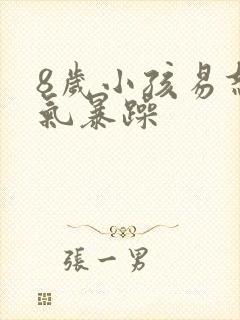 8歲小孩易
氣暴躁
張一男